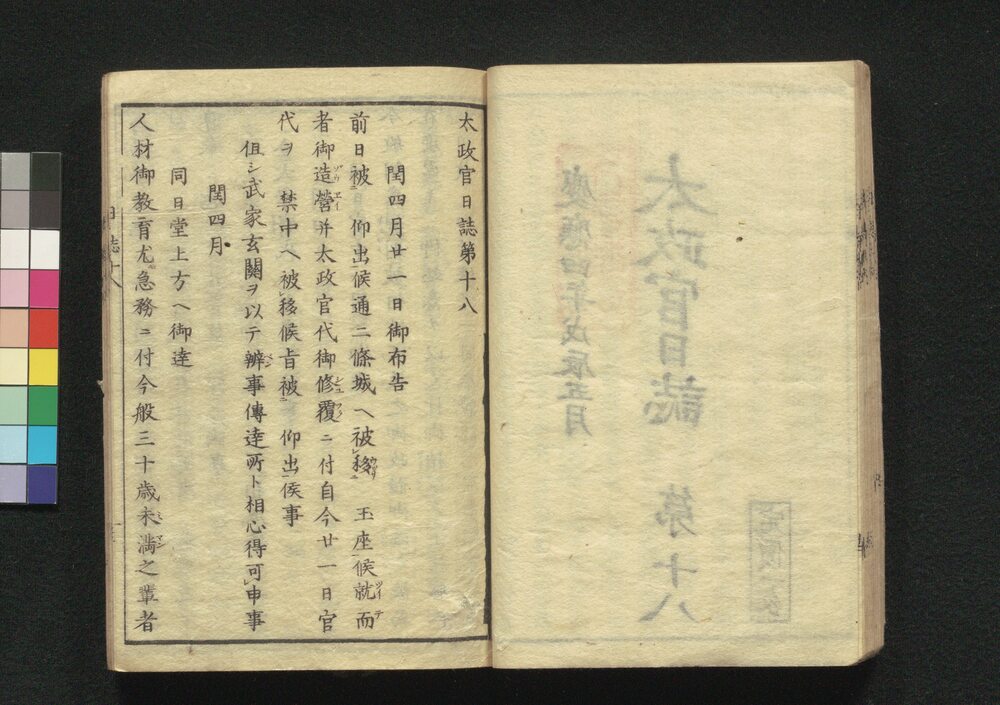 太政官日誌第十八
閏四月廿一日御布告
前日被 仰出候通二條城ヘ被移 玉座候就而
者御造營并太政官代御修覆ニ付自今廿一日官
代ヲ 禁中ヘ被移候旨被 仰出候事
但シ武家玄關ヲ以テ辨事傳達所ト相心得可申事
閏四月
同日堂上方ヘ御達
人材御教育尤急務ニ付今般三十歳未満之輩者
日誌十八
太政官日誌 第十八
慶應四年戊辰五月